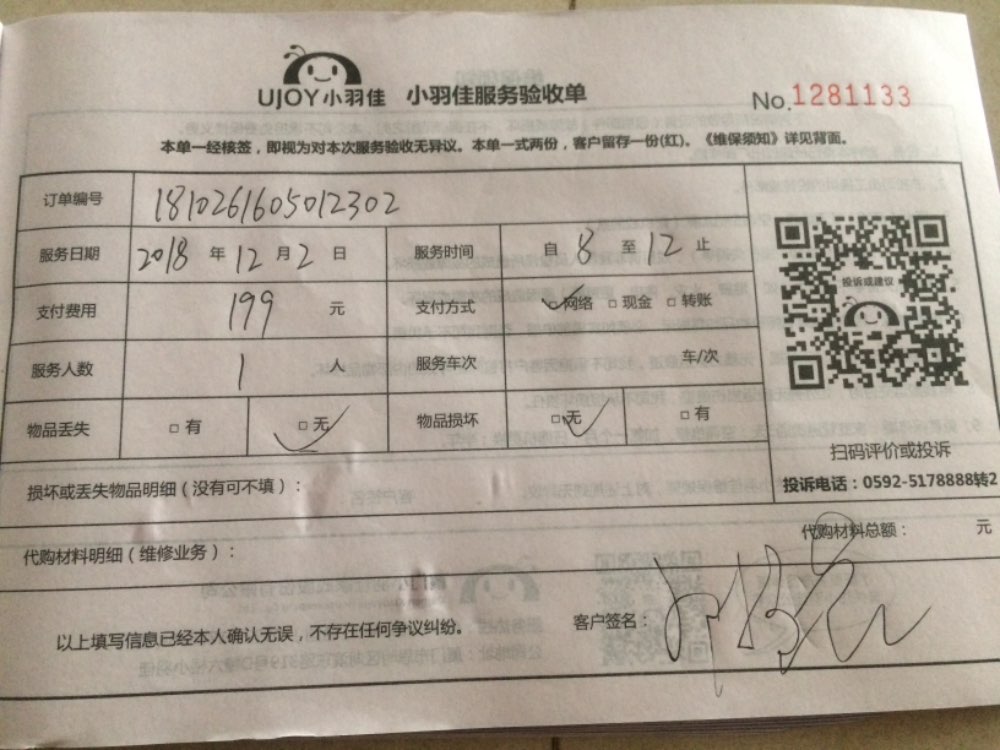 UJOY小羽佳 小羽佳服务验收单 No.1281133
本单一经核签，即视为对本次服务验收无异议。本单一式两份，客户留存一份(红)。《维保须知》详见背面。
订单编号 1810261605012302
服务日期 2018 年 12 月 2 日 服务时间 自 8 至 12 止
投诉或建议
支付费用 199 元 支付方式 □网络 □现金 □转账
服务人数 1 人 服务车次 车/次
物品丢失 □有 □无 物品损坏 □无 □有
扫码评价或投诉
投诉电话：0592-5178888转2
损坏或丢失物品明细（没有可不填）：
代购材料明细（维修业务）： 代购材料总额： 元
以上填写信息已经本人确认无误，不存在任何争议纠纷。 客户签名：